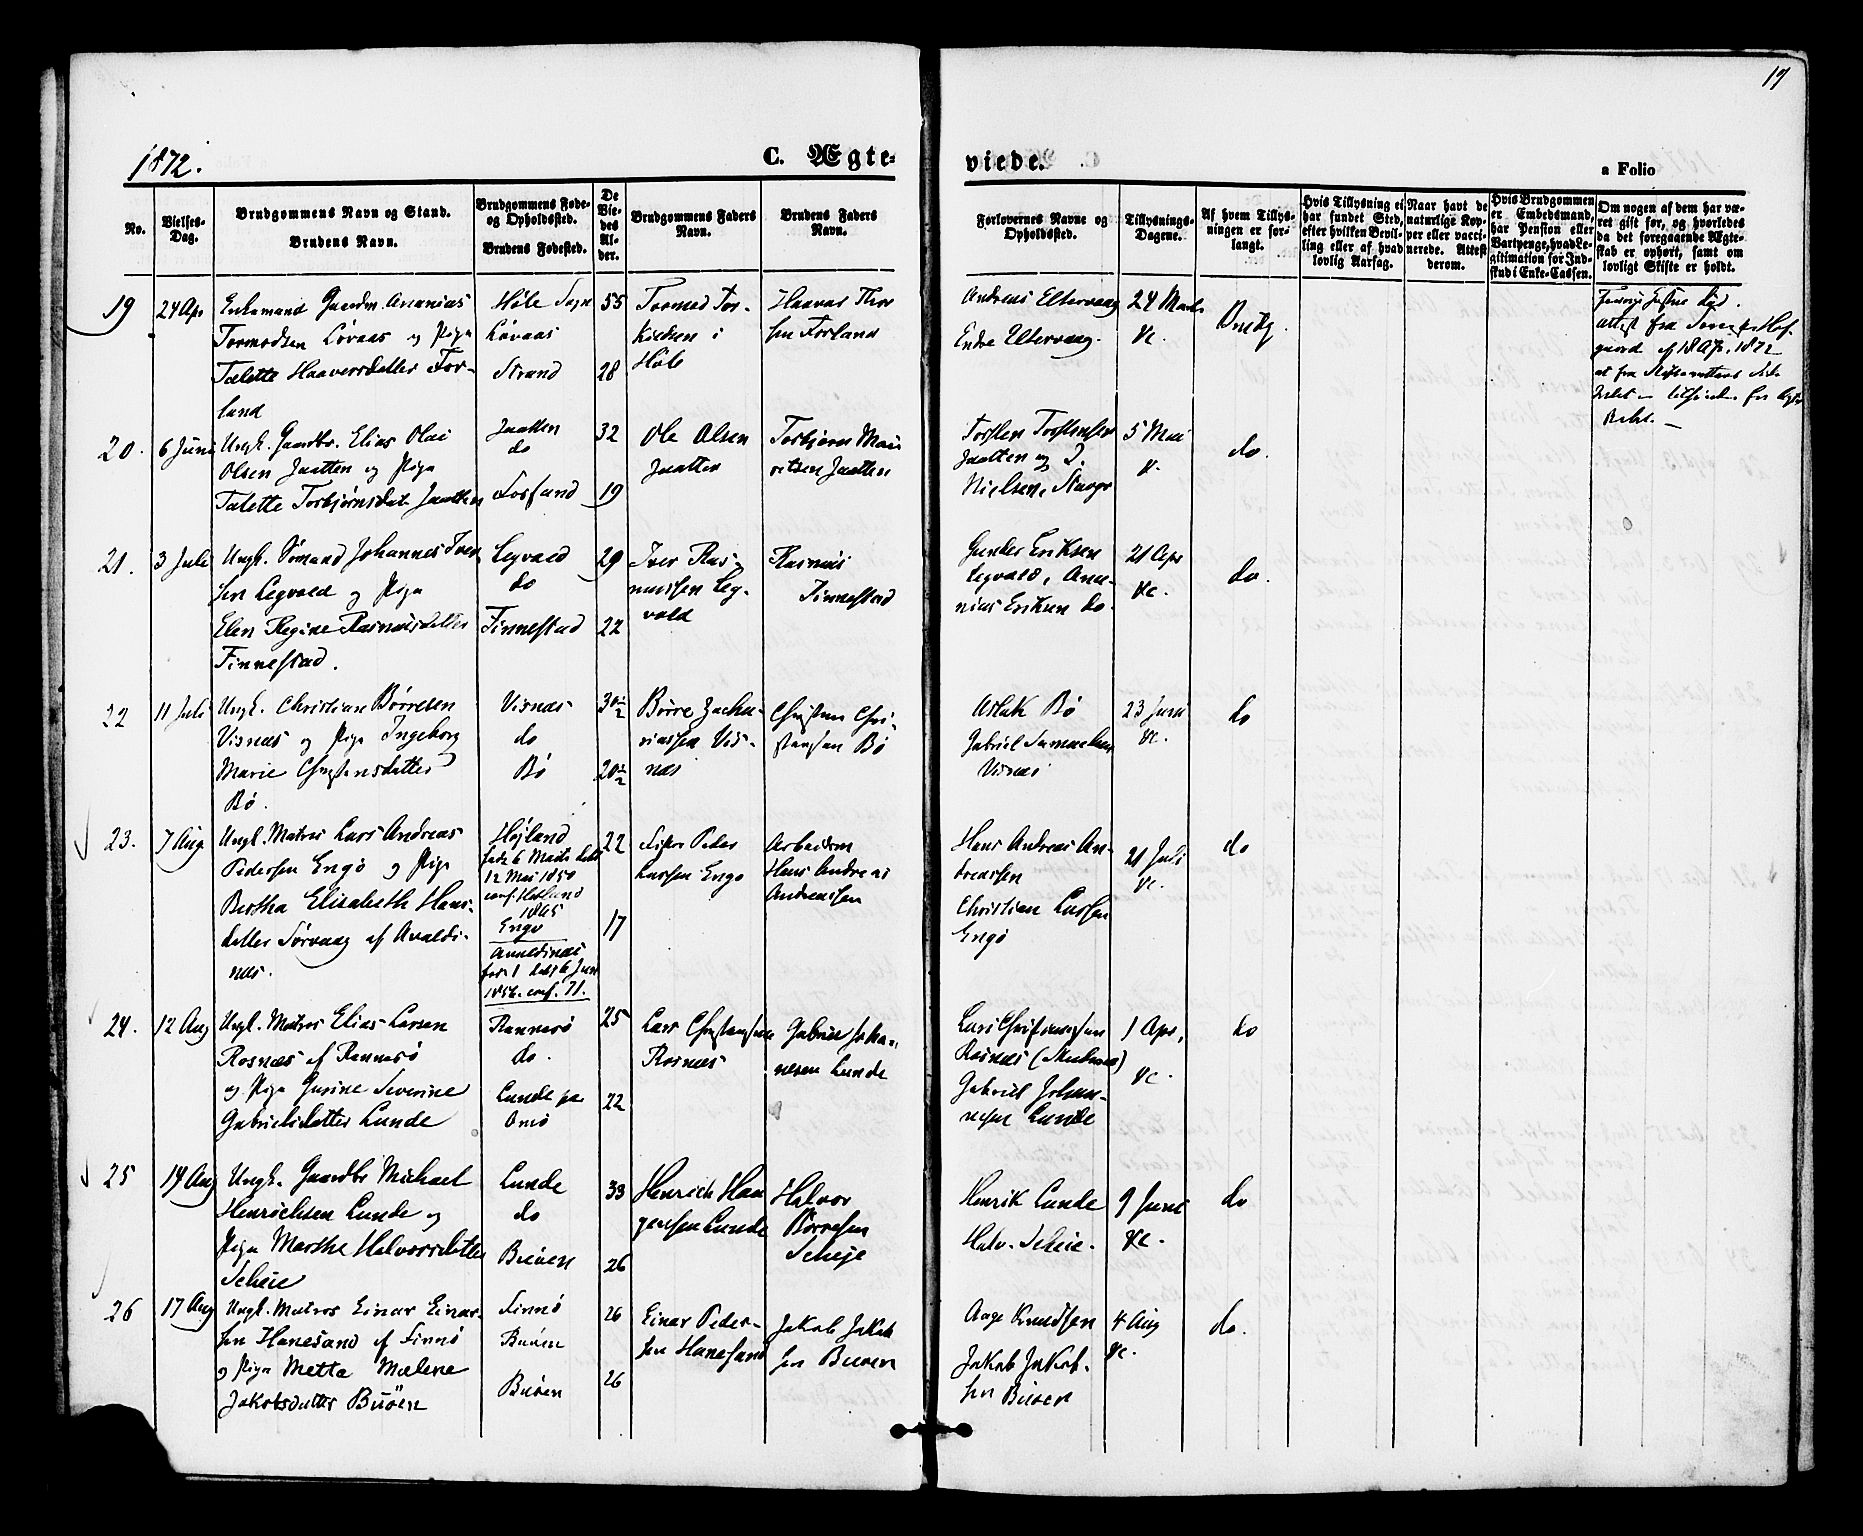 17
1872.
C. Ægte-
viede.
a Folio
No.
Vielses-
Dag.
Brudgommens Navn og Stand.
Brudens Navn.
Brudgommens Føde-
og Opholdssted.
Brudens Fødested.
De
Vie-
des
Al-
der.
Brudgommens Faders
Navn.
Brudens Faders
Navn.
Forlovernes Navne og
Opholdssted.
Tillysnings-
Dagene.
Af hvem Tillys-
ningen er for-
langt.
Hvis Tillysning ei
har fundet Sted,
efter hvilken Bevil-
ling eller af hvad
lovlig Aarsag.
Naar havt de
naturlige Kop-
per eller vacci-
nerede. Attest
derom.
Hvis Brudgommen
er Embedsmand,
har Pension eller
Vartpenge, hvad Le-
gitimation for Ind-
skud i Enke-Cassen.
Om nogen af dem har væ-
ret gift før, og hvorledes
da det foregaaende Ægte-
skab er ophørt, samt om
lovligt Skifte er holdt.
19
24 Apr
Enkemand Gaardm. Ananias
Tormodsen Løvaas og Pige
Talette Haaversdatter For-
land
Høle Sogn
Løvaas
Strand
55
28
Tormod Tor-
kildsen i
Høle
Haavar Thor
sen Forland
Andreas Eltervaag
Endre Eltervaag.
24 Marts
&c.
Brudg
20.
6 Juni
Ungk. Gaardbr. Elias Olai
Olsen Jaatten og Pige
Talette Torbjørnsdat. Jaatten
Jaatten
do
Fossand
32
19
Ole Olsen
Jaatten
Torbjørn Mau
ritsen Jaatten
Torsten Torstensen
Jaatten og
Nielsen,
5 Mai
&c.
do.
21.
3 Juli
Ungk. Sømand Johannes Iver
sen Legvold og Pige
Elen Regine Rasmusdatter
Finnestad.
Legvold
do
Finnestad
29
22
Iver Ras-
mussen Leg-
vold
Rasmus
Finnestad
Gunder Eriksen
Legvold, Ana-
nias Eriksen do.
21 Apr
&c.
do.
22
11 Juli
Ungk. Christian Børresen
Visnæs og Pige Ingeborg
Marie Christensdatter
Bø.
Visnæs
do
Bø
30½
20½
Børre Zacha-
riassen Vis-
næs
Christen Chri-
stensen Bø
Aslak Bø
Gabriel Samuelsen
Visnæs
23 Juni
&c.
do
23.
7 Aug.
Ungk. Matros Lars Andreas
Pedersen Engø og Pige
Bertha Elisabeth Hans-
datter Sørvaag af Avalds-
næs.
Højland
født 6 Marts døbt
12 Mai 1850
conf. Hetland
1865
Engø
Avaldsnæs
1856. conf. 71.
22
17
Peder
Larsen Engø
Arbeidsm
Hans Andreas
Andreassen
Hans Andreas An-
dreassen
Christian Larsen
Engø
21 Juli
&c.
do
24.
12 Aug
Ungk. Matros Elias Larsen
Rosnæs af Rennesø
og Pige Gurine Severine
Gabrielsdatter Lunde
Rennesø
do.
Lunde pa
Omø
25
22
Lars Christensen
Rosnæs
Gabriel Joha-
nesen Lunde
Lars Christensen
Rosnæs
Gabriel Johan-
nesen Lunde
1 Apr,
&c.
do
25
14 Aug
Ungk. Gaardbr Michael
Henrichsen Lunde og
Pige Martha Halvorsdatter
Scheie
Lunde
do
Buøen
33
26
Henrich Haa
gensen Lunde
Halvor
Børresen
Scheje
Henrik Lunde
Halv. Scheie.
9 Juni
&c.
do
26
17 Aug
Ungk. Matros Einar Einar-
sen Hanesand af Finnø
og Pige Metta Malene
Jakobsdatter Buøen
Finnø
Buøen
Buøen
26
26
Einar Peder-
sen Hanesand
Jakob Jakob
sen Buøen
Aage Knudsen
Jakob Jakob-
sen Buøen
4 Aug
&c.
do.